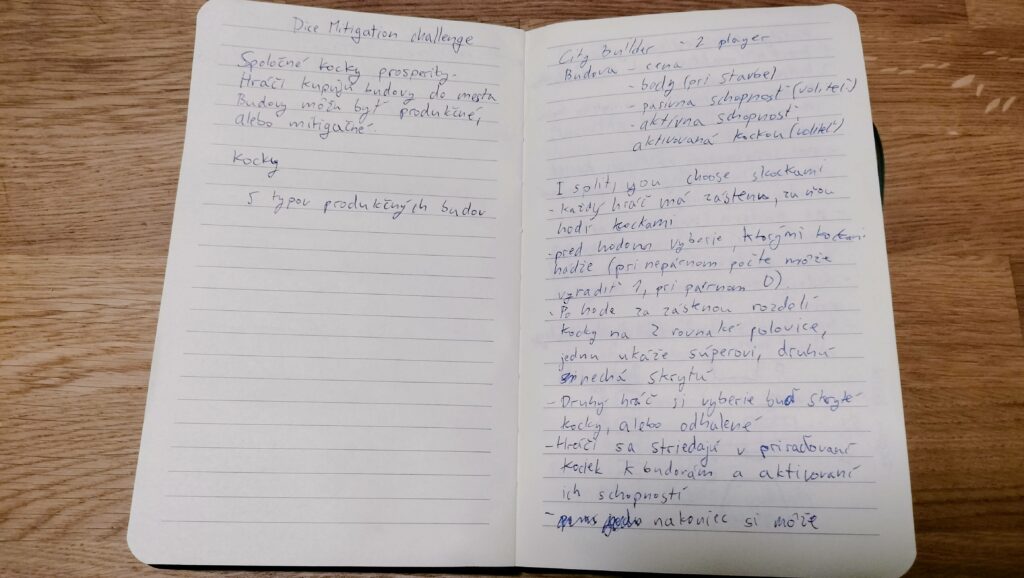 Dice Mitigation challenge
Spoločné kocky prosperity.
Hráči kupujú budovy do mesta
Budovy môžu byť produkčné,
alebo mitigačné.
Kocky
5 typov produkčných budov
City Builder - 2 player
Budova - cena
- body (pri stavbe)
- pasívna schopnosť (voliteľ)
- aktívna schopnosť,
aktivovaná kockou (voliteľ)
I split, you choose s kockami
- každý hráč má zástenu, za ňou
hodí kockami
- pred hodom vyberie, ktorými kockami
hádže (pri nepárnom počte môže
vyradiť 1, pri párnom 0).
- Po hode za zástenou rozdelí
kocky na 2 rovnaké polovice,
jednu ukáže súperovi, druhú
nechá skrytú
- Druhý hráč si vyberie buď skryté
kocky, alebo odhalené
- Hráči sa striedajú v priraďovaní
kociek k budovám a aktivovaní
ich schopností
- nakoniec si môže